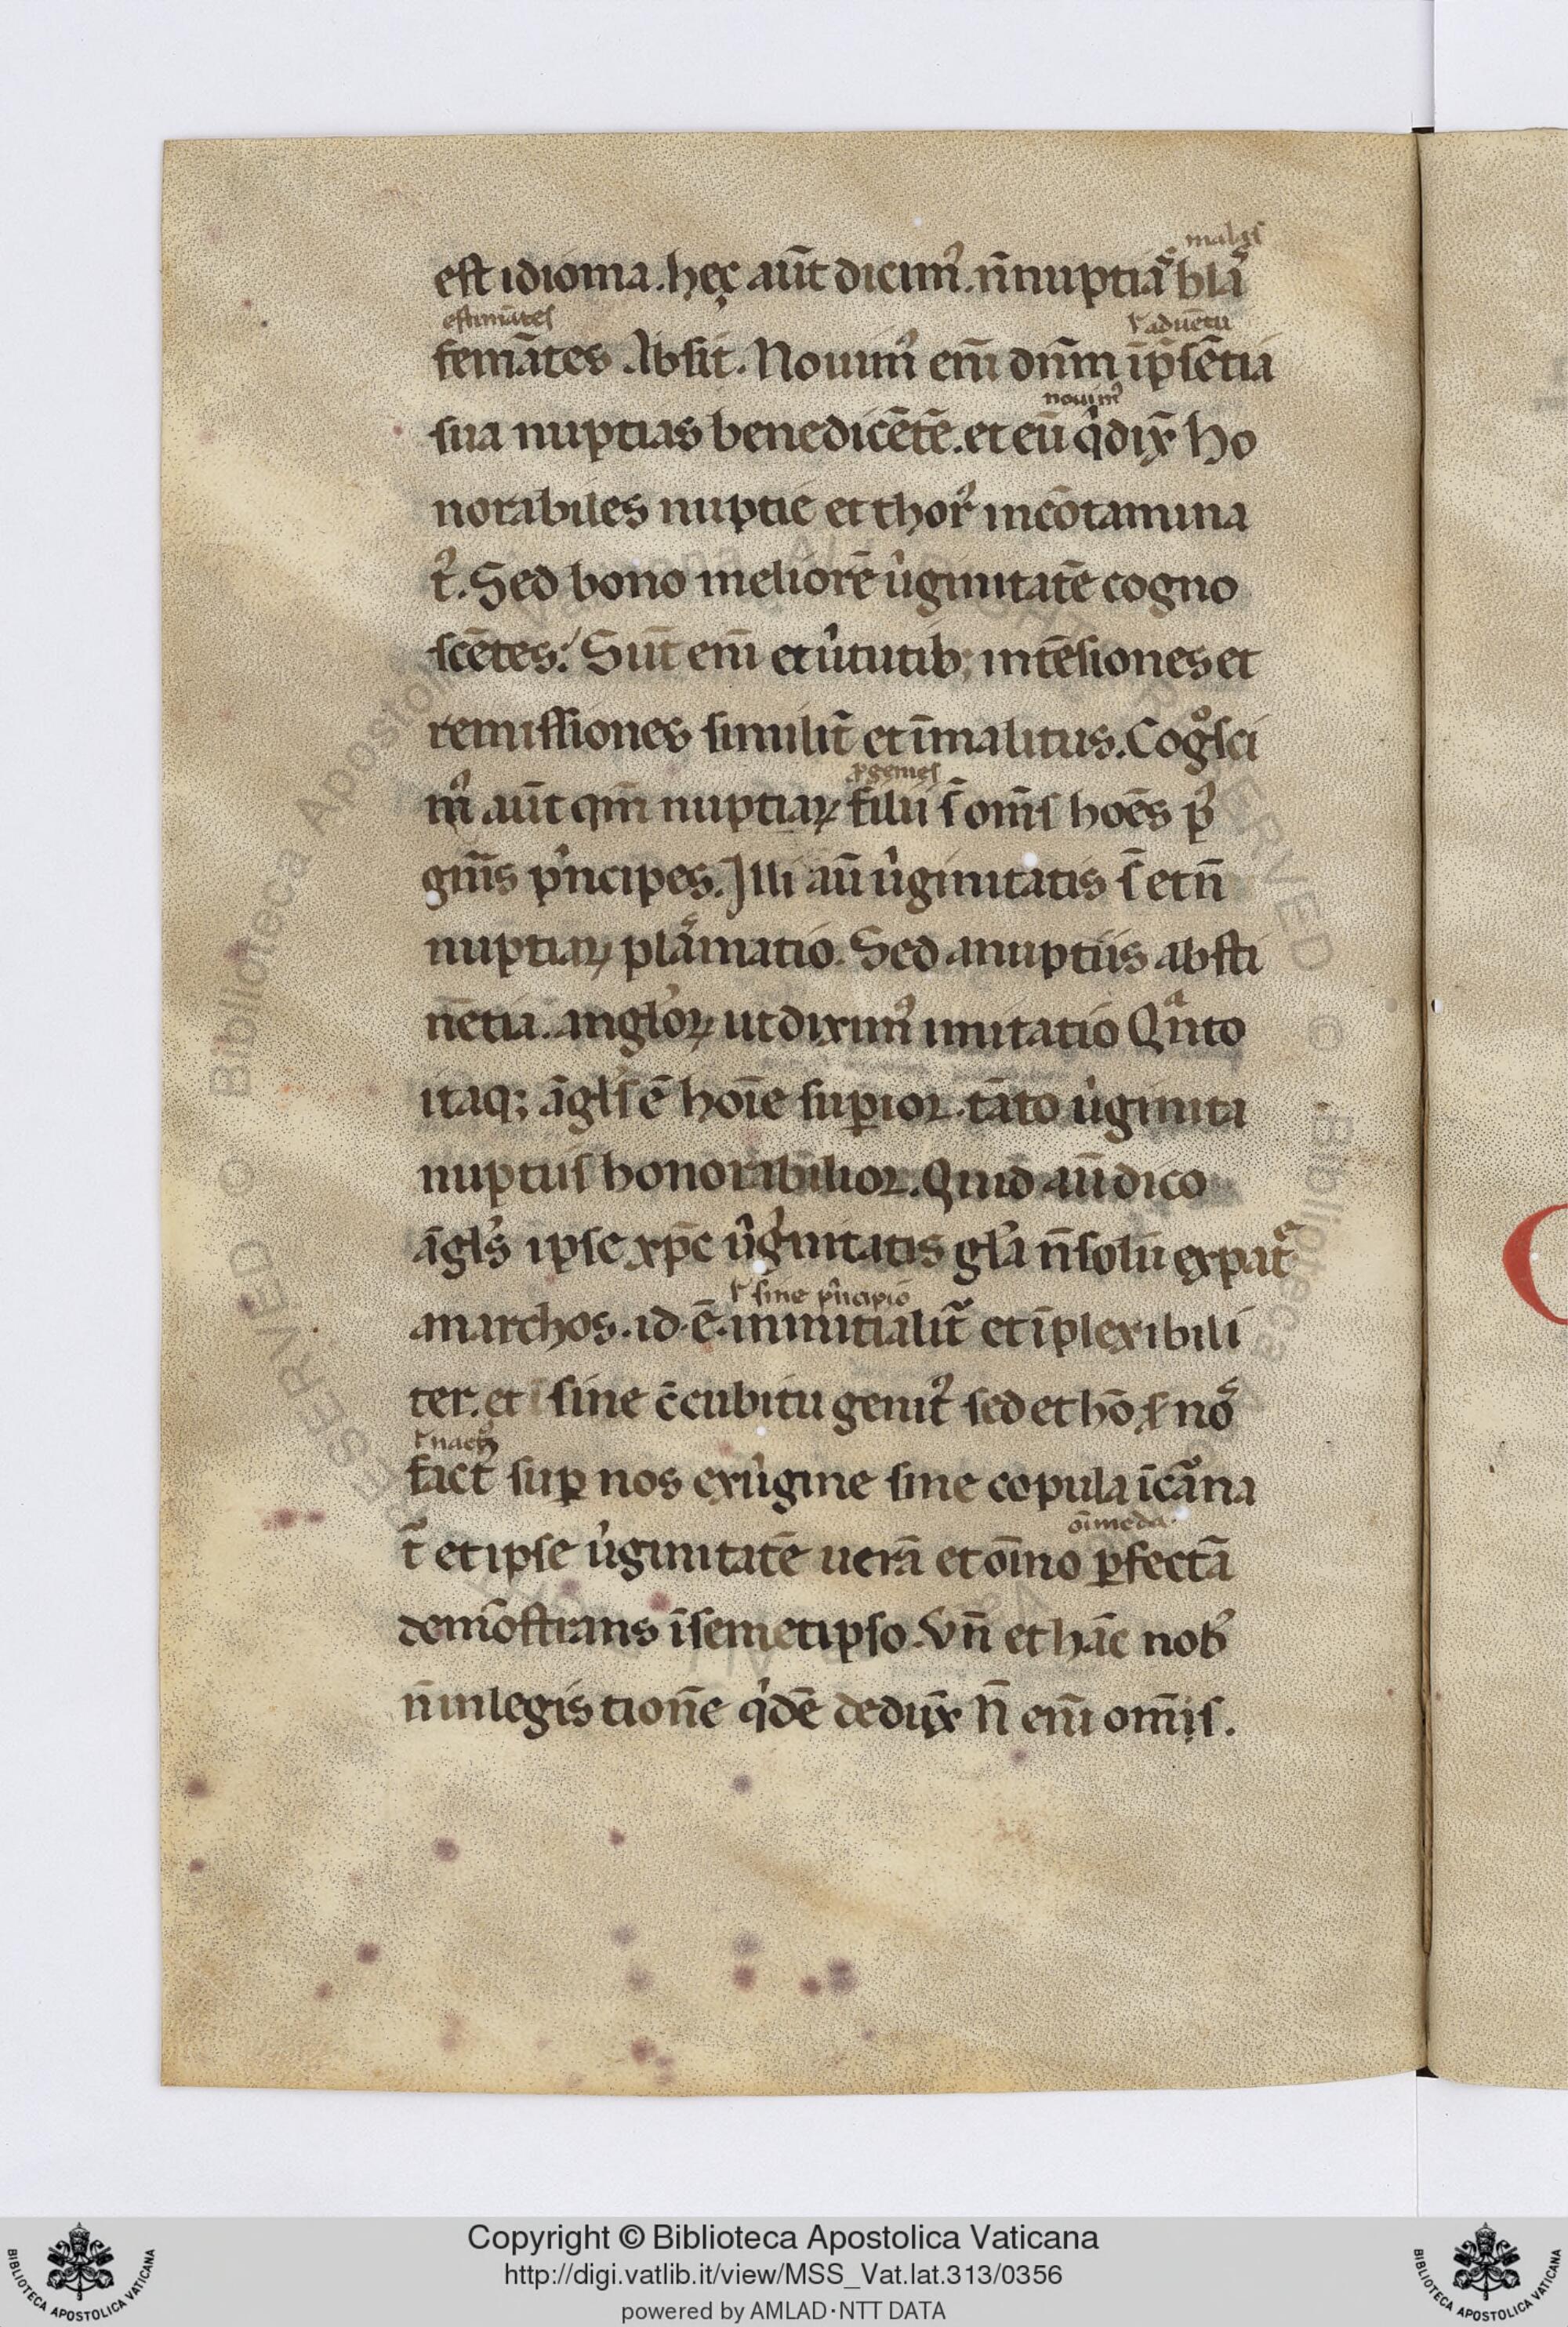 malas
est idioma. hęc aūt dicimꝰ. n̄ nuptiaˢ blaˢ
estimātes ł aduētū
femātes. Absit. Nouimꝰ enī dn̄m ī p̄sētia
nouimꝰ
sua nuptias benedicētē. et eū q̇ dix̄ ho
norabiles nuptie et thorꝰ incōtamina
tꝰ. Sed bono meliorē u͛ginitatē cogno
scētes. Sūt enī et u͛tutib; intēsiones et
remissiones similit͛ et ī malitus. Cogͦsci
ꝓgenies
mꝰ aūt qm̄ nuptiaꝝ filii s̄ om̄s hoēs pꝰ
gn̄is pͥncipes. Illi aū u͛ginitatis s̄ et n̄
nuptiaꝝ plaˢmatio. Sed a nuptiis absti
nētia. angl̓oꝝ ut diximꝰ imitatio Qᵃnto
itaq; āgl̓s ē hoīe supior. tāto u͛ginita
nuptiis honorabilior. Quid aū dico
āgl̓s ipse xp̄c u͛ginitatis gl̓a n̄ solū ex patͤ
ł sine pͥncipio
anarchos. id. ē. ininitialit͛ et īplexibili
ter. et sine c̄cubitu genitꝰ sed et hō ẜ noˢ
ł nactꝰ
fact̄ suꝑ nos ex u͛gine sine copula īcaͬna
oīmoda
t͛ et ipse u͛ginitatē uerā et oīno ꝑfectā
demōstrans ī semetipso. Vn̄ et hāc nob̓
n̄ in legis tione qͥdē dedux̄ N̄ enī om̄is.
Copyright © Biblioteca Apostolica Vaticana
http://digi.vatlib.it/view/MSS_Vat.lat.313/0356
powered by AMLAD·NTT DATA
BIBLIOTECA APOSTOLICA VATICANA
BIBLIOTECA APOSTOLICA VATICANA